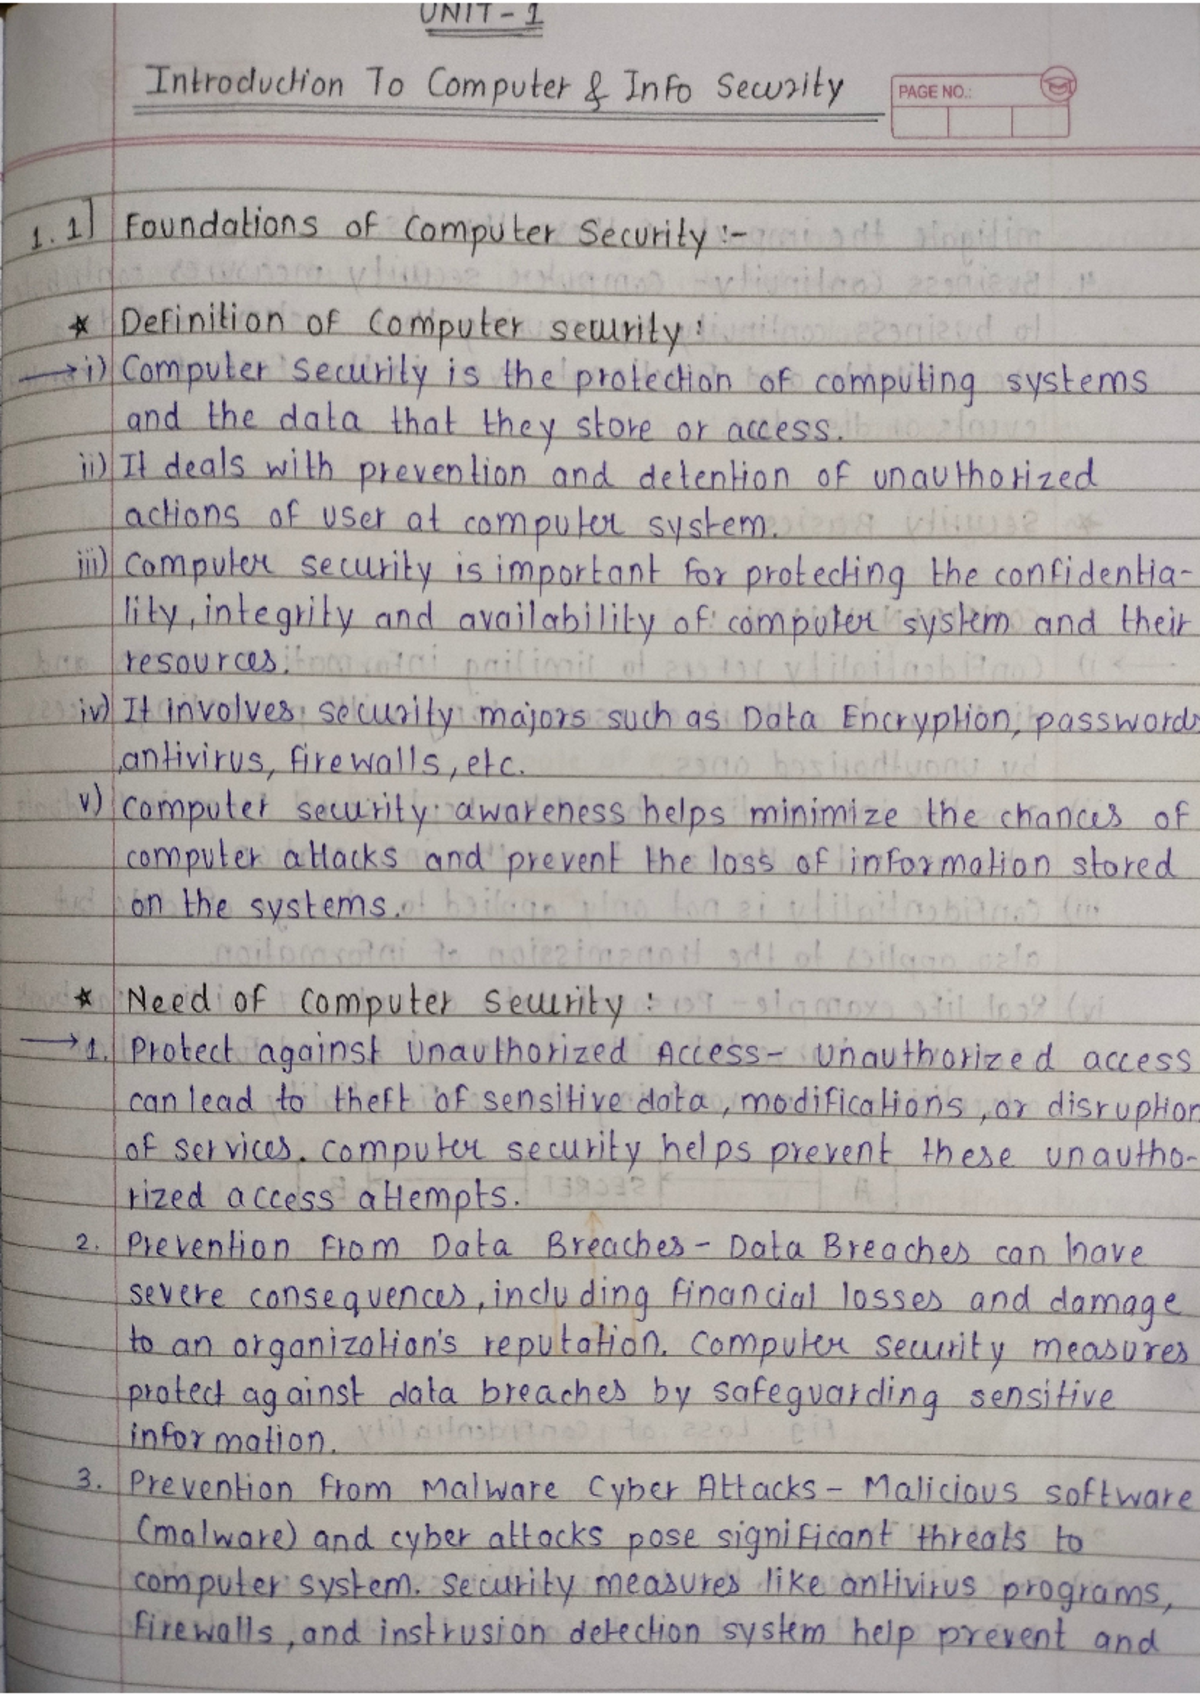 UNIT - 1
Introduction To Computer & Info Security
PAGE NO.:
1.1] Foundations of Computer Security :-
* Definition of Computer security :
→ i) Computer Security is the protection of computing systems
and the data that they store or access.
ii) It deals with prevention and detention of unauthorized
actions of user at computer system.
iii) Computer security is important for protecting the confidentia-
lity, integrity and availability of computer system and their
resources.
iv) It involves security majors such as Data Encryption, passwords
,antivirus, firewalls, etc.
v) Computer security awareness helps minimize the chances of
computer attacks and prevent the loss of information stored
on the systems.
* Need of Computer Security :
→ 1. Protect against Unauthorized Access - Unauthorized access
can lead to theft of sensitive data, modifications, or disruption
of services. Computer security helps prevent these unautho-
rized access attempts.
2. Prevention From Data Breaches - Data Breaches can have
severe consequences, including financial losses and damage
to an organization's reputation. Computer Security measures
protect against data breaches by safeguarding sensitive
information.
3. Prevention from Malware Cyber Attacks - Malicious software
(malware) and cyber attacks pose significant threats to
computer system. Security measures like antivirus programs,
firewalls, and instrusion detection system help prevent and